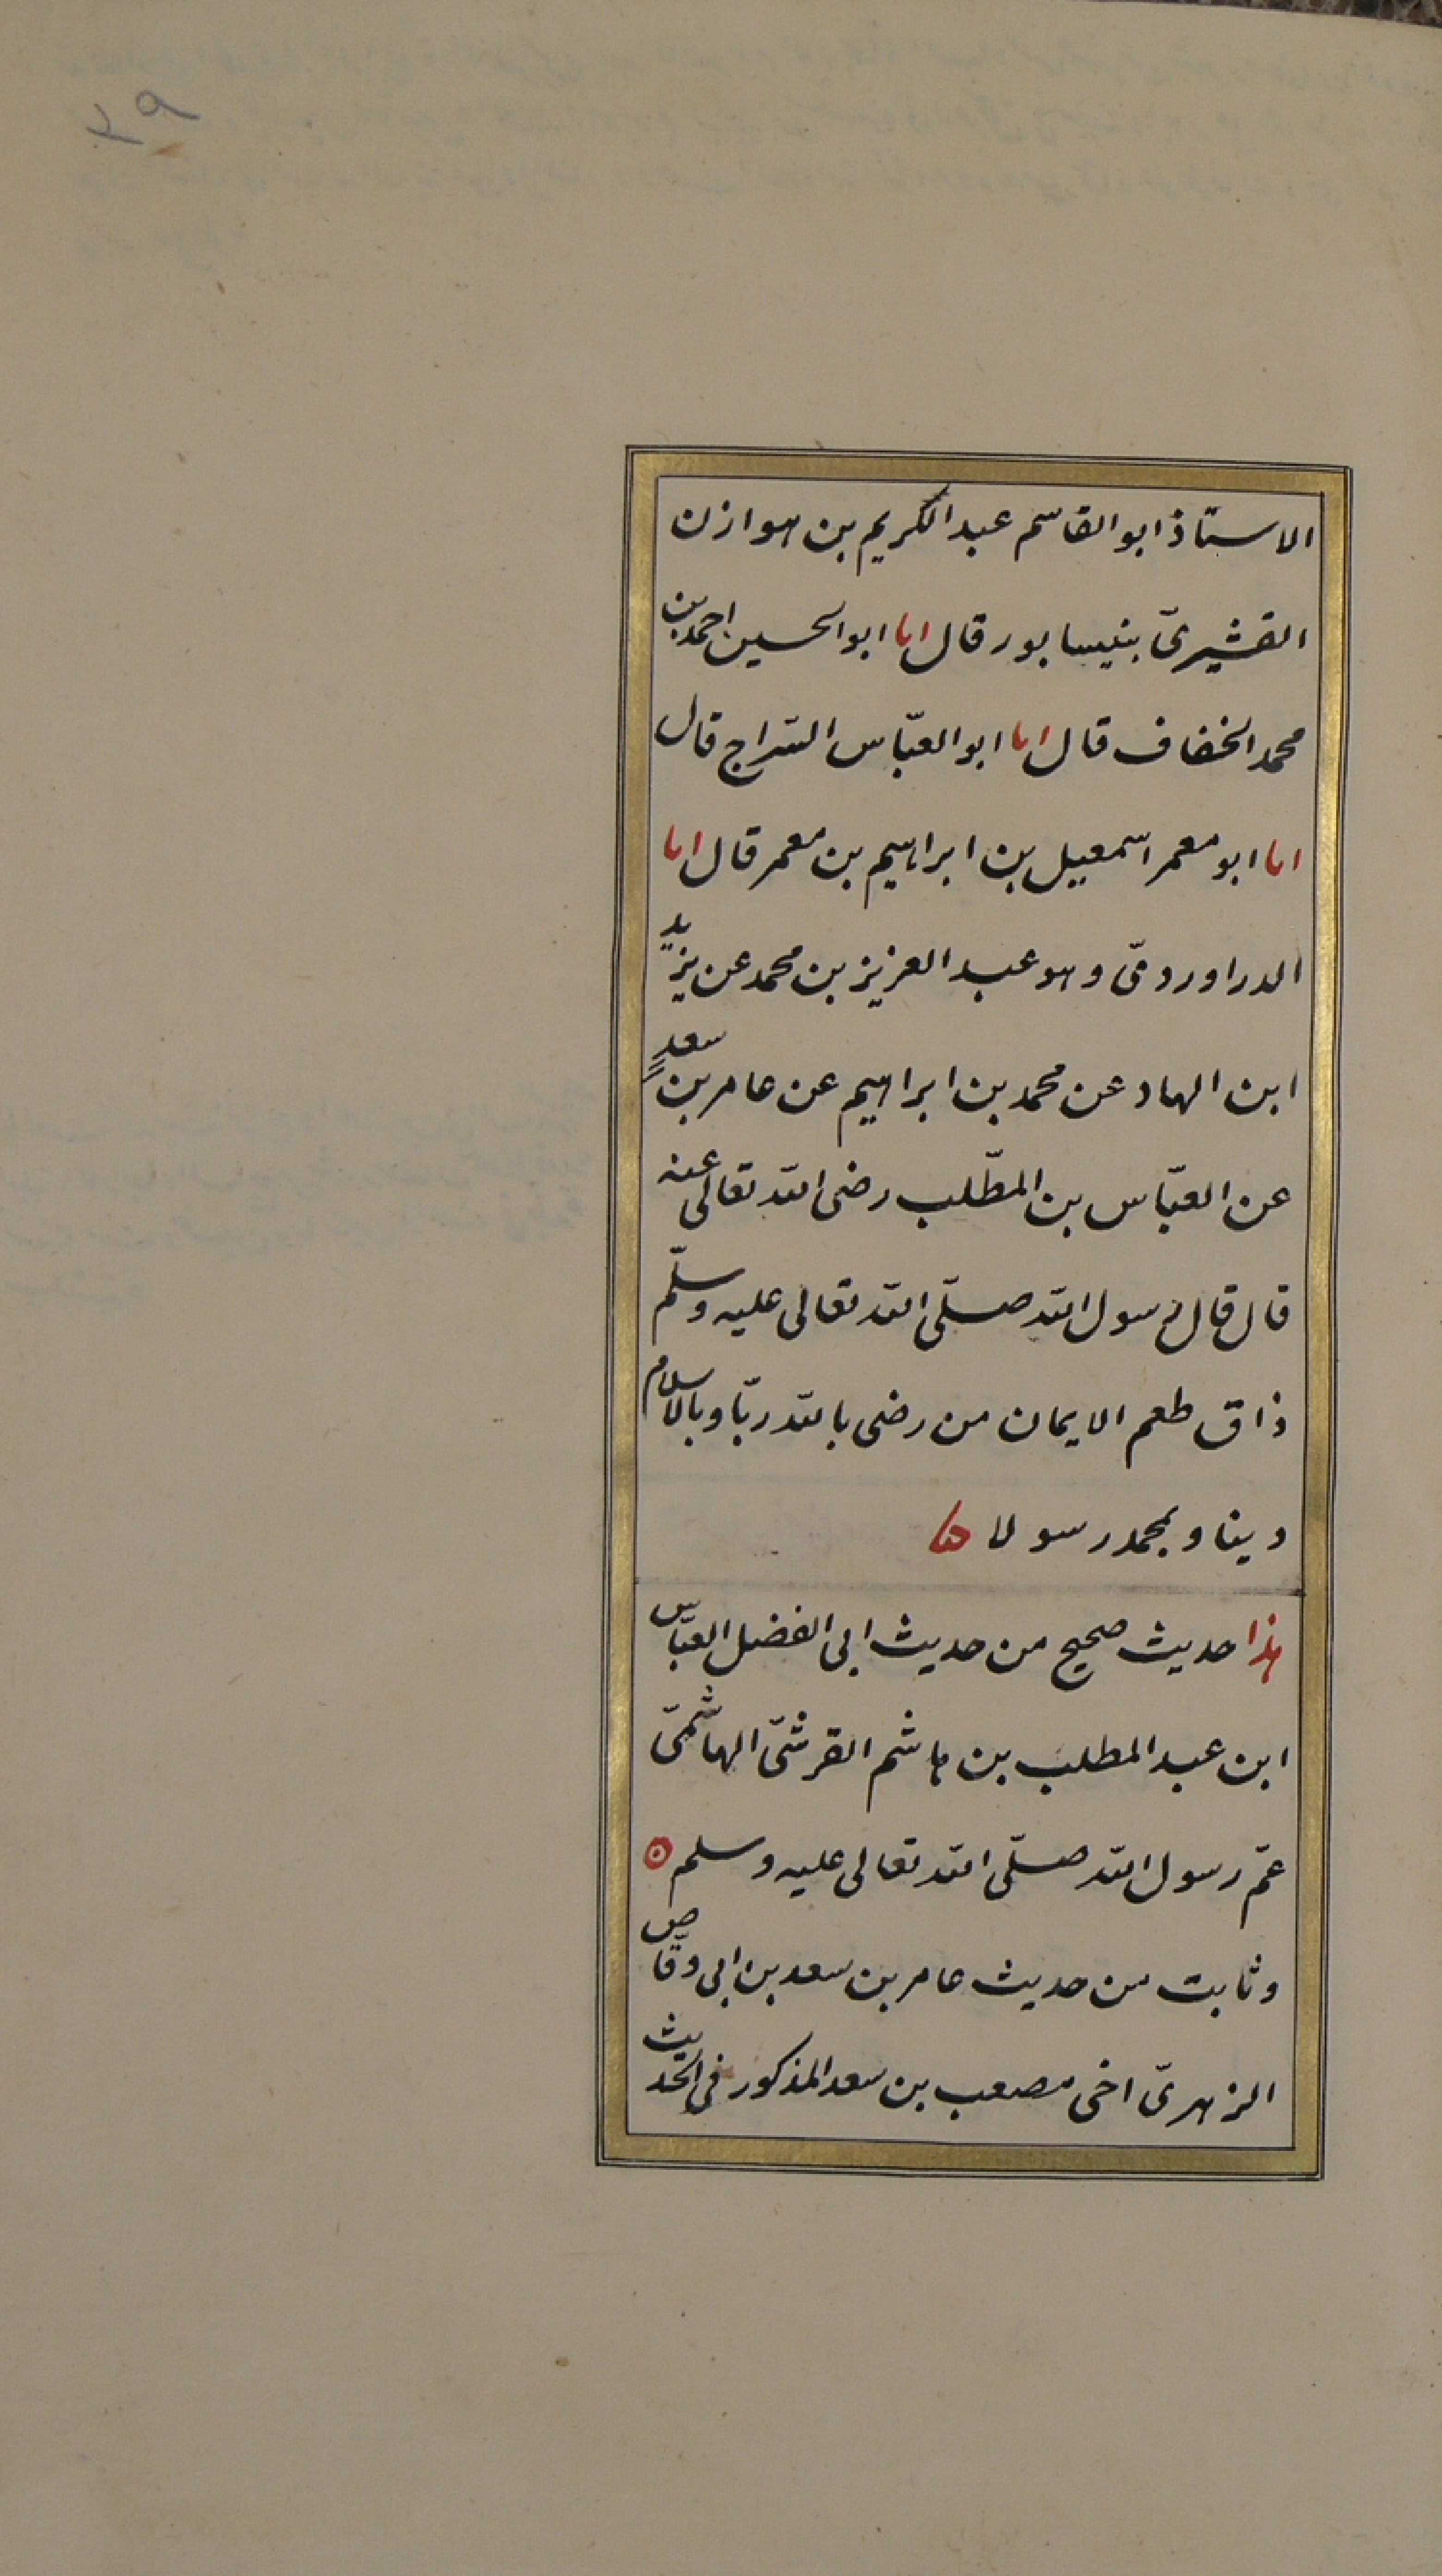 ٢٩
الاستاذ ابو القاسم عبد الكريم بن هوازن
القشيرىّ بنيسابور قال انا ابو الحسين احمد بن
محمد الخفاف قال انا ابو العبّاس السّراج قال
انا ابو معمر اسمعيل بن ابراهيم بن معمر قال انا
الدراوردىّ وهو عبد العزيز بن محمد عن يزيد
ابن الهاد عن محمد بن ابراهيم عن عامر بن سعدٍ
عن العبّاس بن المطّلب رضى الله تعالى عنه
قال قال رسول الله صلّى الله تعالى عليه وسلّم
ذاق طعم الايمان من رضى بالله ربّا وبالاسلام
دينا وبمحمد رسولا
هذا حديث صحيح من حديث ابى الفضل العبّاس
ابن عبد المطلب بن هاشم القرشىّ الهاشمىّ
عمّ رسول الله صلّى الله تعالى عليه وسلم
وثابت من حديث عامر بن سعد بن ابى وقّاص
الزهرىّ اخى مصعب بن سعد المذكور فى الحديث